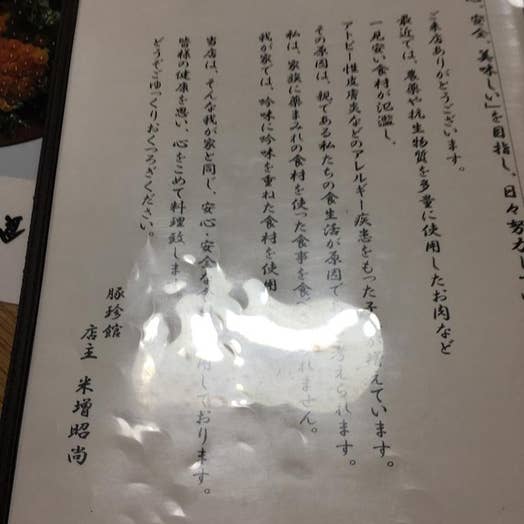 安全 美味しい」を目指し、日々努力
ご来店ありがとうございます。
最近では、農薬や抗生物質を多量に使用したお肉など
一見安い食材が氾濫し、
アトピー性皮膚炎などのアレルギー疾患をもった子 増えています。
その原因は、親である私たちの食生活が原因で 考えられます。
私は、家族に薬まみれの食材を使った食事を食べ れません。
我が家では、吟味に吟味を重ねた食材を使用
当店は、そんな我が家と同じ、安心・安全な 用しております。
皆様の健康を思い、心をこめて料理致しま
どうぞごゆっくりおくつろぎください。
豚珍館
店主 米増昭尚